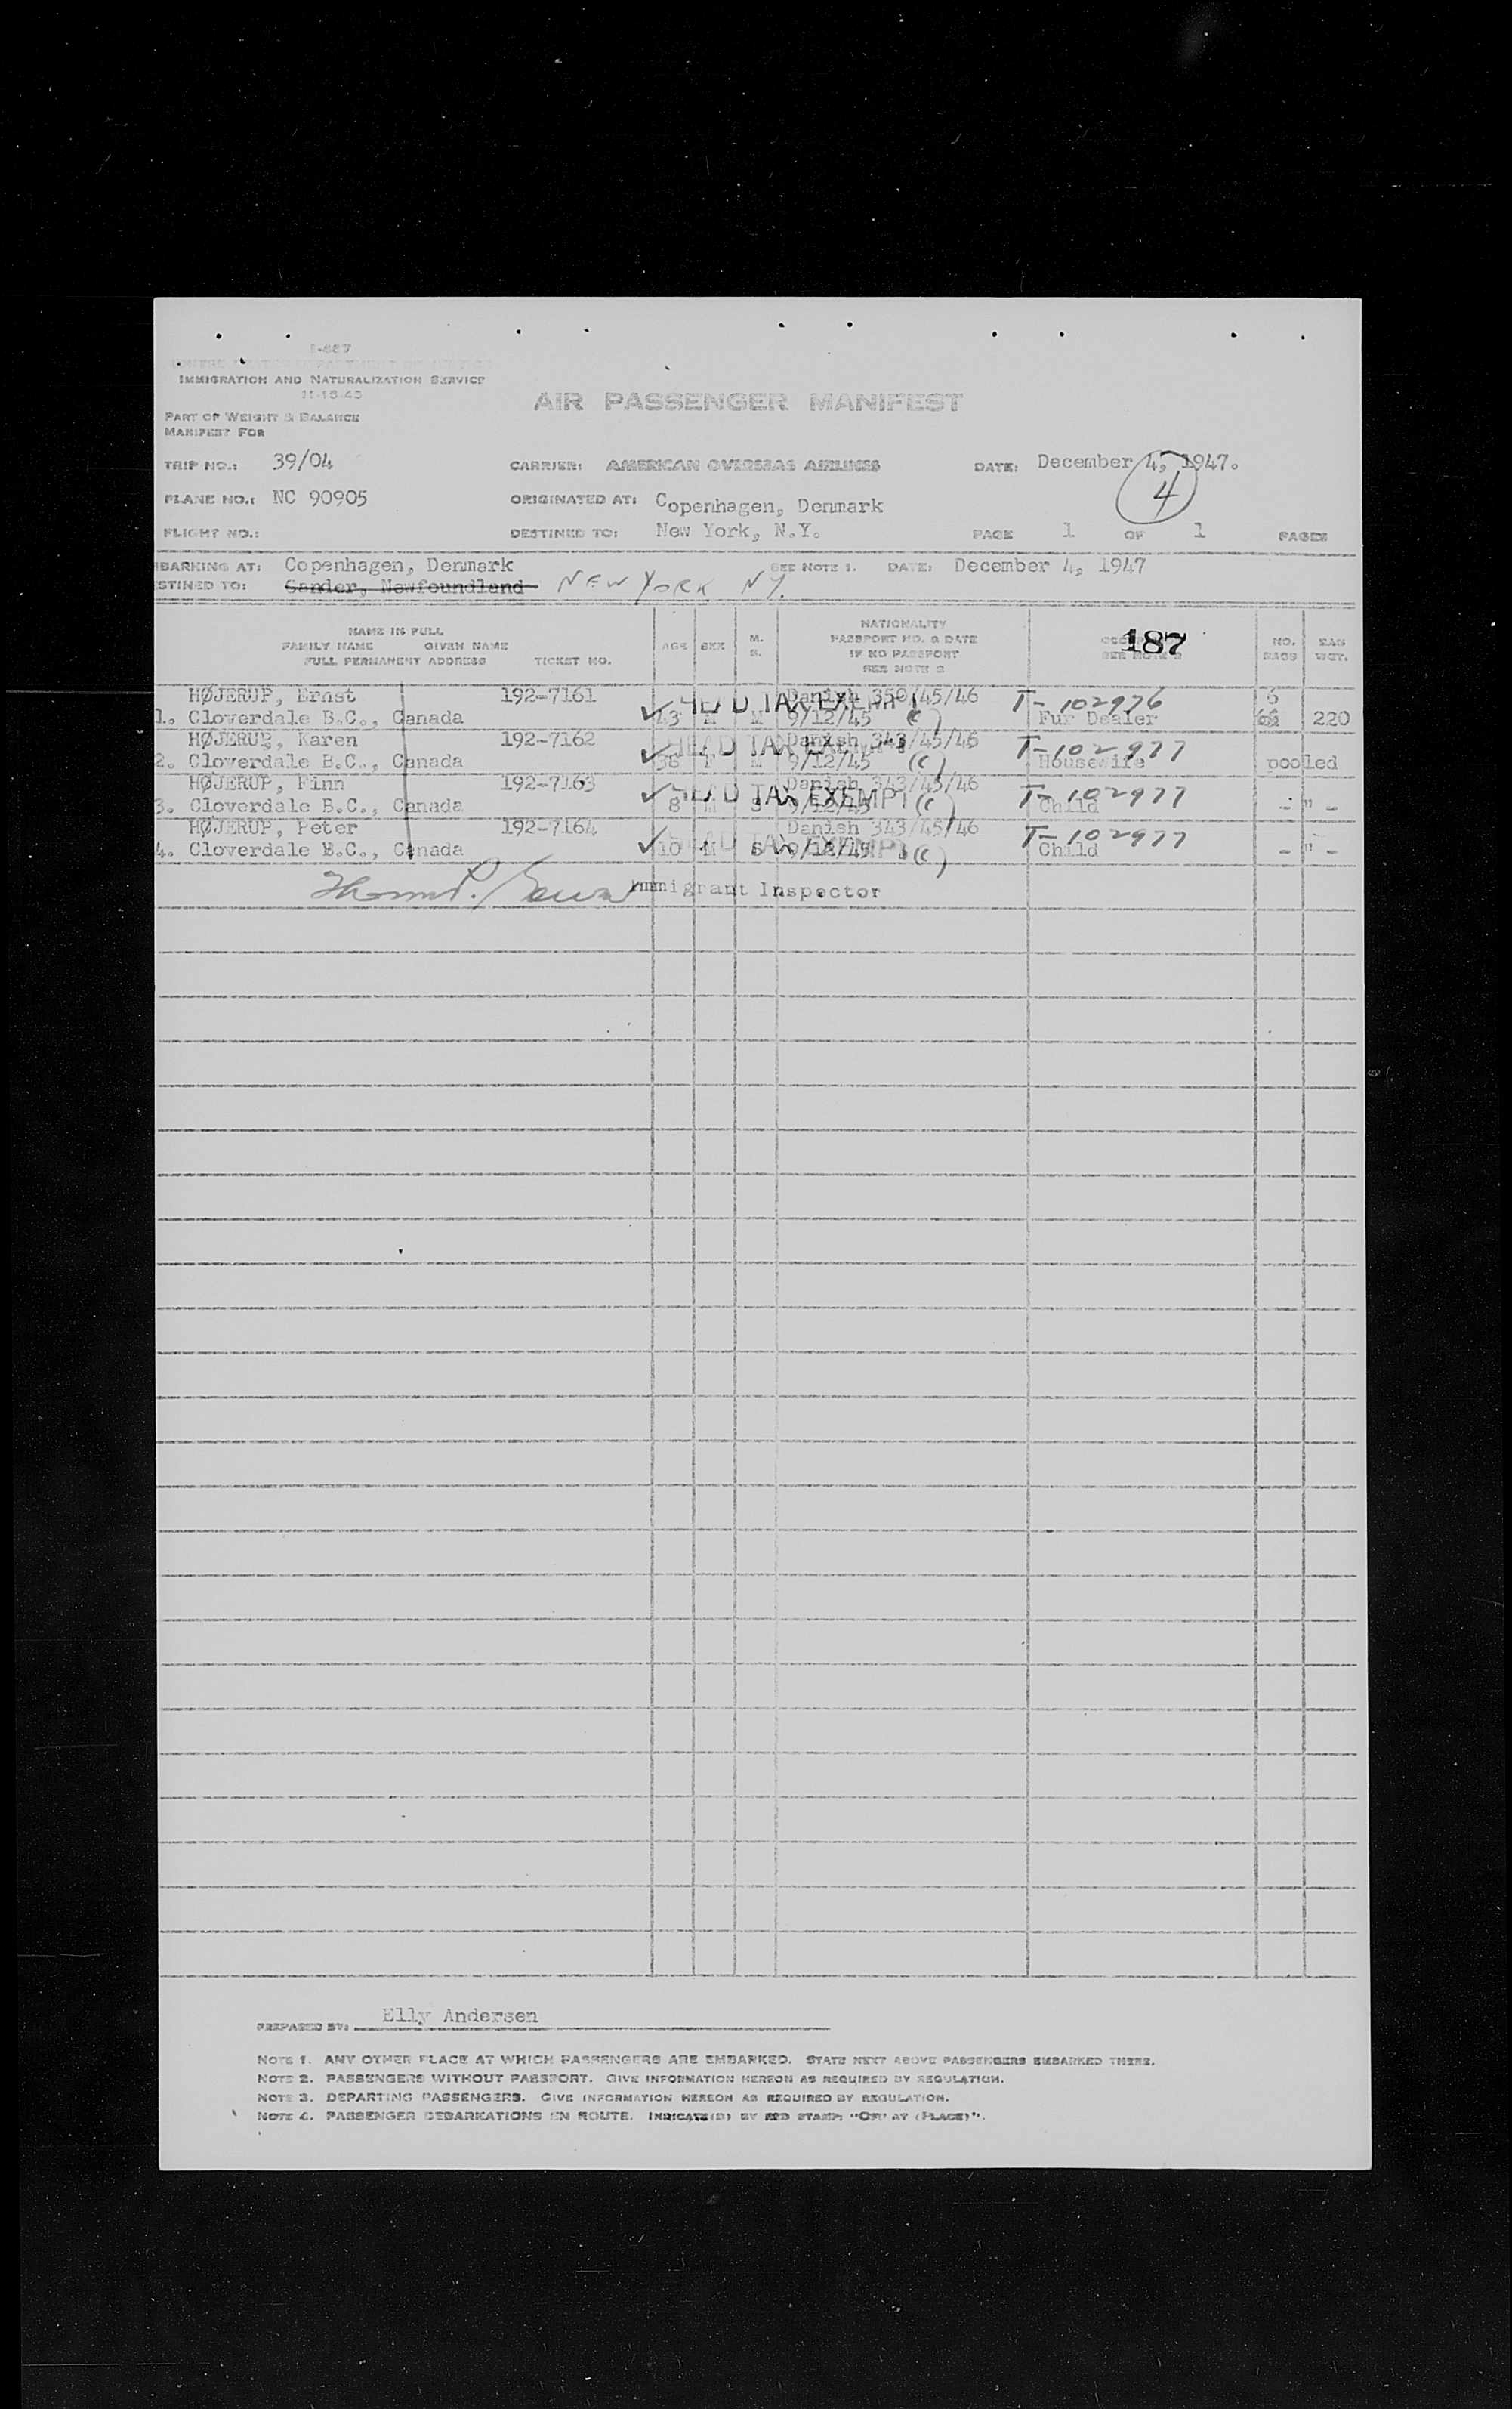 I-887
IMMIGRATION AND NATURALIZATION SERVICE
11-15-45
AIR PASSENGER MANIFEST
PART OF WEIGHT & BALANCE
MANIFEST FOR
TRIP NO.: 39/04 CARRIER: AMERICAN OVERSEAS AIRLINES DATE: December 4, 1947.
4
PLANE NO.: NC 90905 ORIGINATED AT: Copenhagen, Denmark
FLIGHT NO.: DESTINED TO: New York, N.Y. PAGE 1 OF 1 PAGES
BARKING AT: Copenhagen, Denmark SEE NOTE 1. DATE: December 4, 1947
STINED TO: Gander, Newfoundland NEW YORK NY.
NAME IN FULL
FAMILY NAME GIVEN NAME
FULL PERMANENT ADDRESS TICKET NO.
AGE SEX M. S.
NATIONALITY
PASSPORT NO. & DATE
IF NO PASSPORT
SEE NOTE 2
187
NO. BAGS BAG WGT.
HØJERUP, Ernst 192-7161 HEAD TAX EXEMPT Danish 350/45/46 T-102976 6
1. Cloverdale B.C., Canada 43 M M 9/12/45 (c) Fur Dealer 220
HØJERUP, Karen 192-7162 HEAD TAX EXEMPT Danish 343/45/46 T-102977
2. Cloverdale B.C., Canada 38 F M 9/12/45 (c) Housewife pooled
HØJERUP, Finn 192-7163 HEAD TAX EXEMPT Danish 343/45/46 T-102977
3. Cloverdale B.C., Canada 8 M S 9/12/45 (c) Child - " -
HØJERUP, Peter 192-7164 HEAD TAX EXEMPT Danish 343/45/46 T-102977
4. Cloverdale B.C., Canada 10 M S 9/12/45 (c) Child - " -
Immigrant Inspector
PREPARED BY: Elly Andersen
NOTE 1. ANY OTHER PLACE AT WHICH PASSENGERS ARE EMBARKED. STATE NEXT ABOVE PASSENGERS EMBARKED THERE.
NOTE 2. PASSENGERS WITHOUT PASSPORT. GIVE INFORMATION HEREON AS REQUIRED BY REGULATION.
NOTE 3. DEPARTING PASSENGERS. GIVE INFORMATION HEREON AS REQUIRED BY REGULATION.
NOTE 4. PASSENGER DEBARKATIONS EN ROUTE. INDICATE(D) BY RED STAMP: "OFF AT (PLACE)".